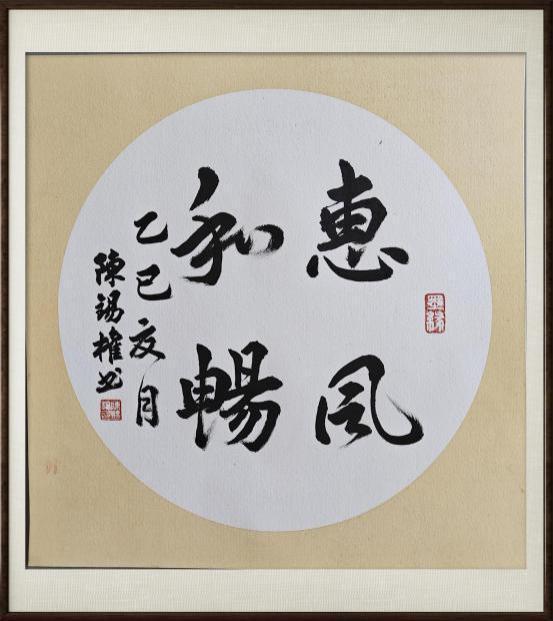 惠風
和暢
乙巳亥月
陳錫權书